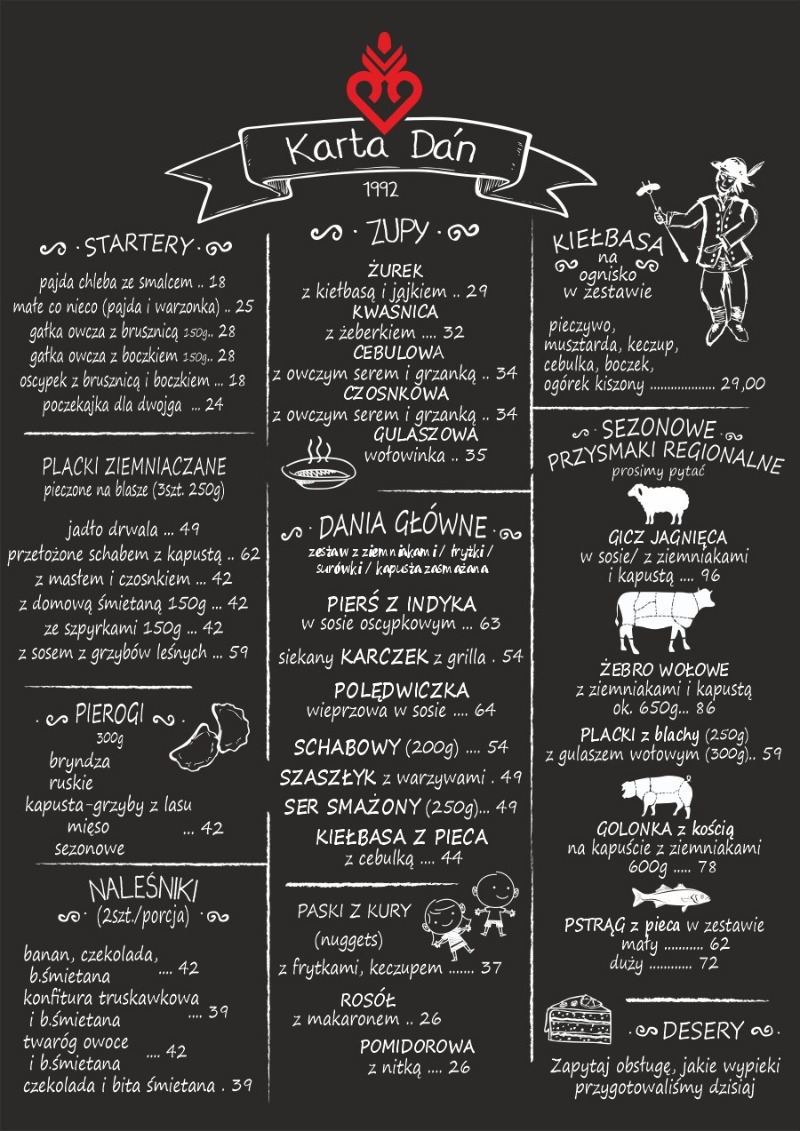 Karta Dań
1992
STARTERY
pajda chleba ze smalcem .. 18
małe co nieco (pajda i warzonka) .. 25
gałka owcza z brusznicą 150g.. 28
gałka owcza z boczkiem 150g.. 28
oscypek z brusznicą i boczkiem ... 18
poczekajka dla dwojga ... 24
PLACKI ZIEMNIACZANE
pieczone na blasze (3szt. 250g)
jadło drwala ... 49
przełożone schabem z kapustą .. 62
z masłem i czosnkiem ... 42
z domową śmietaną 150g ... 42
ze szpyrkami 150g ... 42
z sosem z grzybów leśnych ... 59
PIEROGI
300g
bryndza
ruskie
kapusta-grzyby z lasu
mięso ... 42
sezonowe
NALEŚNIKI
(2szt./porcja)
banan, czekolada,
b.śmietana .... 42
konfitura truskawkowa
i b.śmietana .... 39
twaróg owoce
i b.śmietana .... 42
czekolada i bita śmietana . 39
ZUPY
ŻUREK
z kiełbasą i jajkiem .. 29
KWASNICA
z żeberkiem .... 32
CEBULOWA
z owczym serem i grzanką .. 34
CZOSNKOWA
z owczym serem i grzanką .. 34
GULASZOWA
wołowinka .. 35
DANIA GŁÓWNE
zestaw z ziemniakami / frytki /
surówki / kapusta zasmażana
PIERŚ Z INDYKA
w sosie oscypkowym ... 63
siekany KARCZEK z grilla . 54
POLĘDWICZKA
wieprzowa w sosie .... 64
SCHABOWY (200g) .... 54
SZASZŁYK z warzywami . 49
SER SMAŻONY (250g)... 49
KIEŁBASA Z PIECA
z cebulką .... 44
PASKI Z KURY
(nuggets)
z frytkami, keczupem ....... 37
ROSÓŁ
z makaronem .. 26
POMIDOROWA
z nitką .... 26
KIEŁBASA
na
ognisko
w zestawie
pieczywo,
musztarda, keczup,
cebulka, boczek,
ogórek kiszony ................... 29,00
SEZONOWE
PRZYSMAKI REGIONALNE
prosimy pytać
GICZ JAGNIĘCA
w sosie/ z ziemniakami
i kapustą .... 96
ŻEBRO WOŁOWE
z ziemniakami i kapustą
ok. 650g... 86
PLACKI z blachy (250g)
z gulaszem wołowym (300g).. 59
GOLONKA z kością
na kapuście z ziemniakami
600g ..... 78
PSTRĄG z pieca w zestawie
mały ........... 62
duży ............ 72
DESERY
Zapytaj obsługę, jakie wypieki
przygotowaliśmy dzisiaj